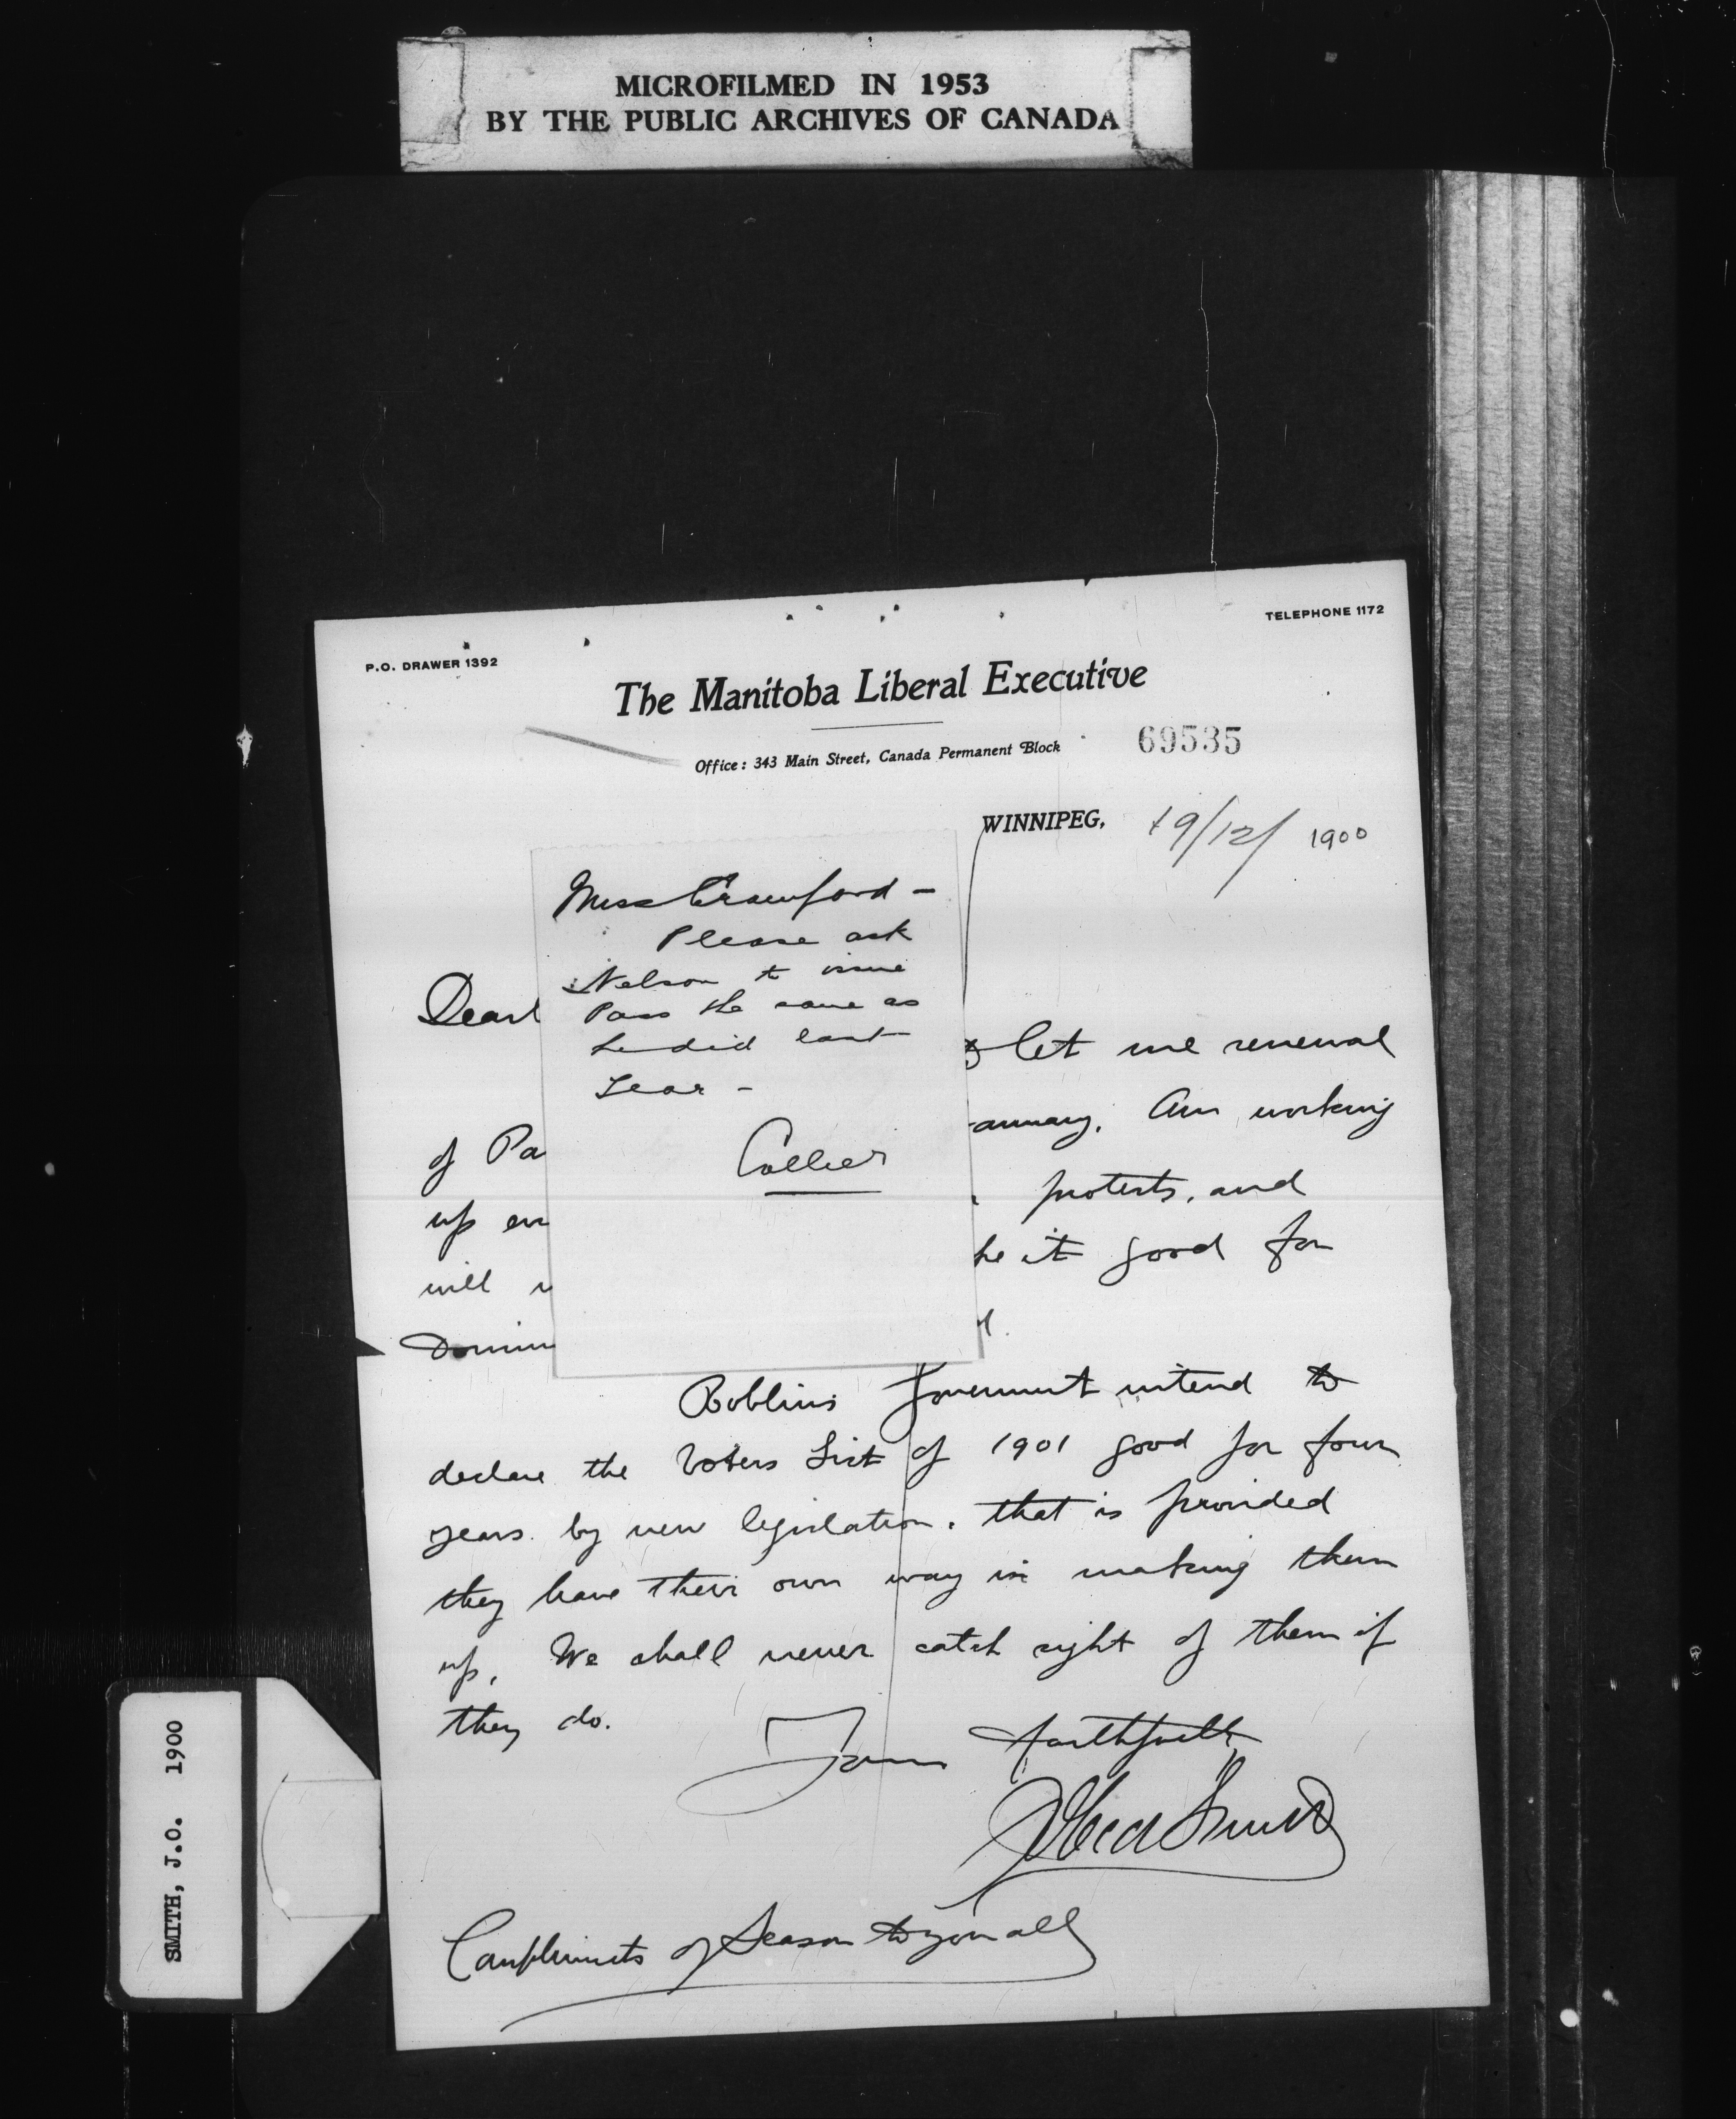 MICROFILMED IN 1953
BY THE PUBLIC ARCHIVES OF CANADA
P.O. DRAWER 1392
TELEPHONE 1172
The Manitoba Liberal Executive
Office: 343 Main Street, Canada Permanent Block
69535
WINNIPEG, 19/12/ 1900
Miss Crawford -
Please ask
Nelson to issue
Pass the same as
he did last
Year -
Collier
Dear
let me renewal
of Pa anuary. Am working
up protests, and
will it good for
Domin
Roblins Government intend to
declare the Voters List of 1901 good for four
years by new legislation, that is provided
they have their own way in making them
up. We shall never catch sight of them if
they do.
Yours faithfully
Smith
Compliments of Season to you all
SMITH, J.O. 1900